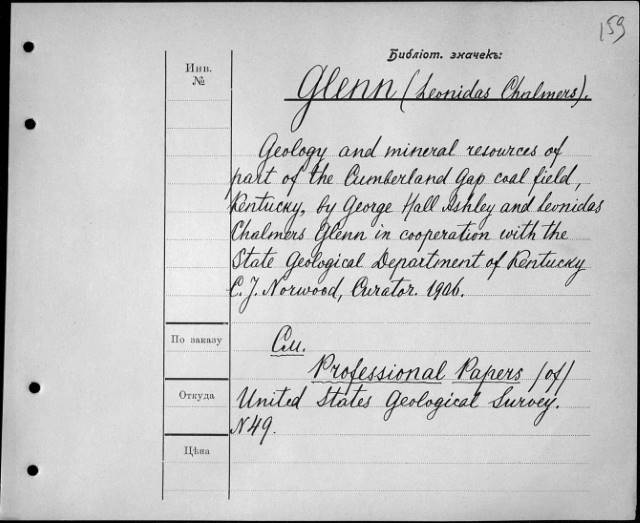 159
Библіот. значекъ:
Инв.
№
Glenn (Leonidas Chalmers).
Geology and mineral resources of
part of the Cumberland Gap coal field,
Kentucky, by George Hall Ashley and Leonidas
Chalmers Glenn in cooperation with the
State Geological Department of Kentucky
C. J. Norwood, Curator. 1906.
По заказу
См.
Professional Papers /of/
Откуда
United States Geological Survey.
N 49.
Цѣна